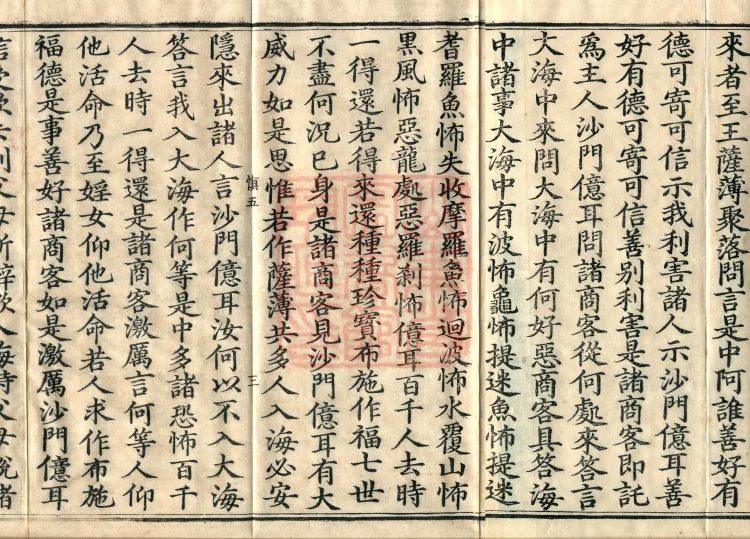 來者至王薩薄聚落問言是中阿誰善好有
德可寄可信示我利害諸人示沙門億耳善
好有德可寄可信善別利害是諸商客即託
爲主人沙門億耳問諸商客從何處來答言
大海中來問大海中有何好惡商客具答海
中諸事大海中有波怖龜怖提迷魚怖提迷
耆羅魚怖失收摩羅魚怖迴波怖水覆山怖
黑風怖惡龍處惡羅刹怖億耳百千人去時
一得還若得來還種種珍寶布施作福七世
不盡何況已身是諸商客見沙門億耳有大
威力如是思惟若作薩薄共多人入海必安
慎五
三
隱來出諸人言沙門億耳汝何以不入大海
答言我入大海作何等是中多諸恐怖百千
人去時一得還是諸商客激厲言何等人仰
他活命乃至婬女仰他活命若人求作布施
福德是事善好諸商客如是激厲沙門億耳